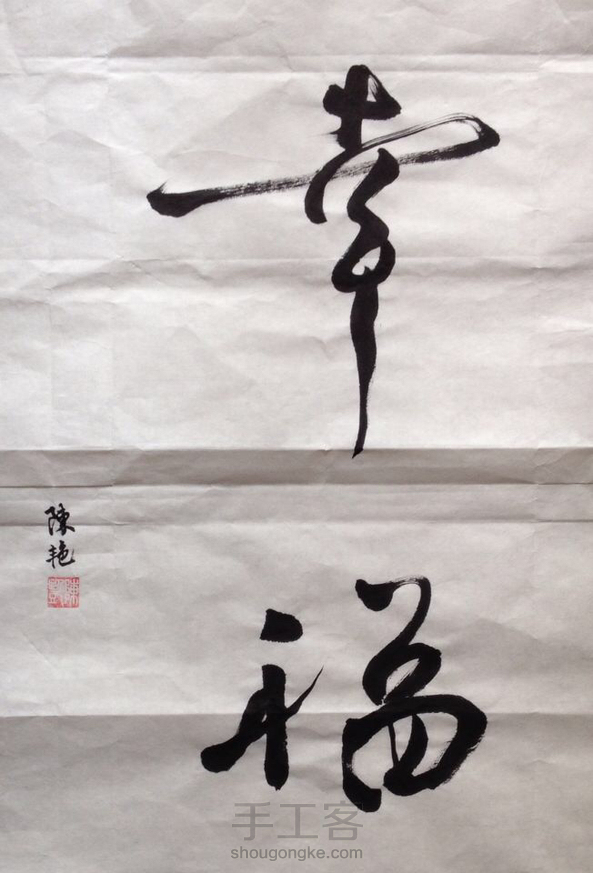 幸
福
陳
艳
手工客
shougongke.com